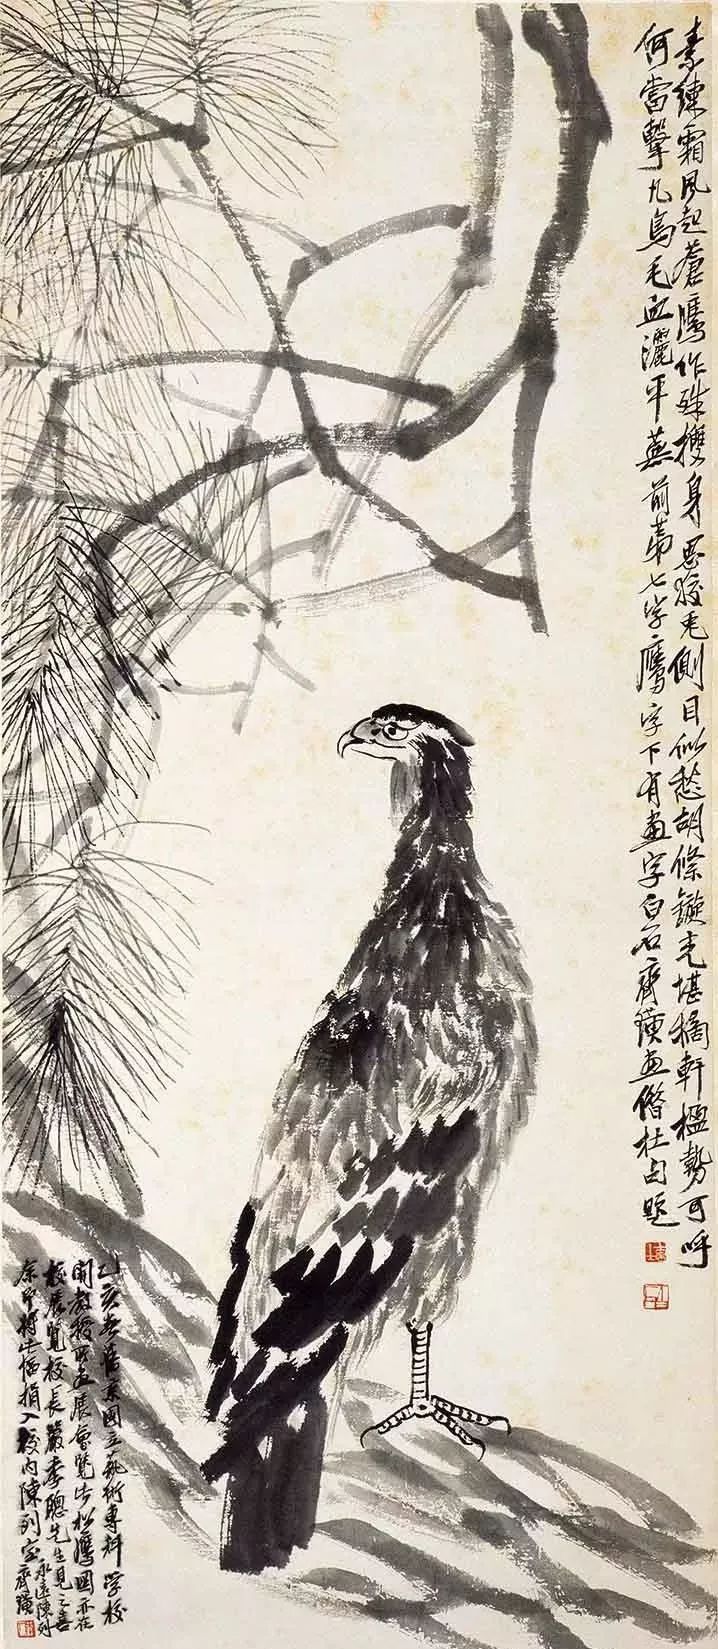 素練霜風起蒼鷹作殊㩳身思狡兔側目似愁胡絛鏇光堪摘軒楹勢可呼
何當擊凡鳥毛血灑平蕪前第七字鷹字下有畫字白石齊璜畫借杜句題
乙亥春舊京國立藝術專科學校
開教授所畫展會覽此松鷹圖亦在
校展覽校長嚴季聰先生見之喜
余即將此幅捐入校內陳列室永遠陳列齊璜